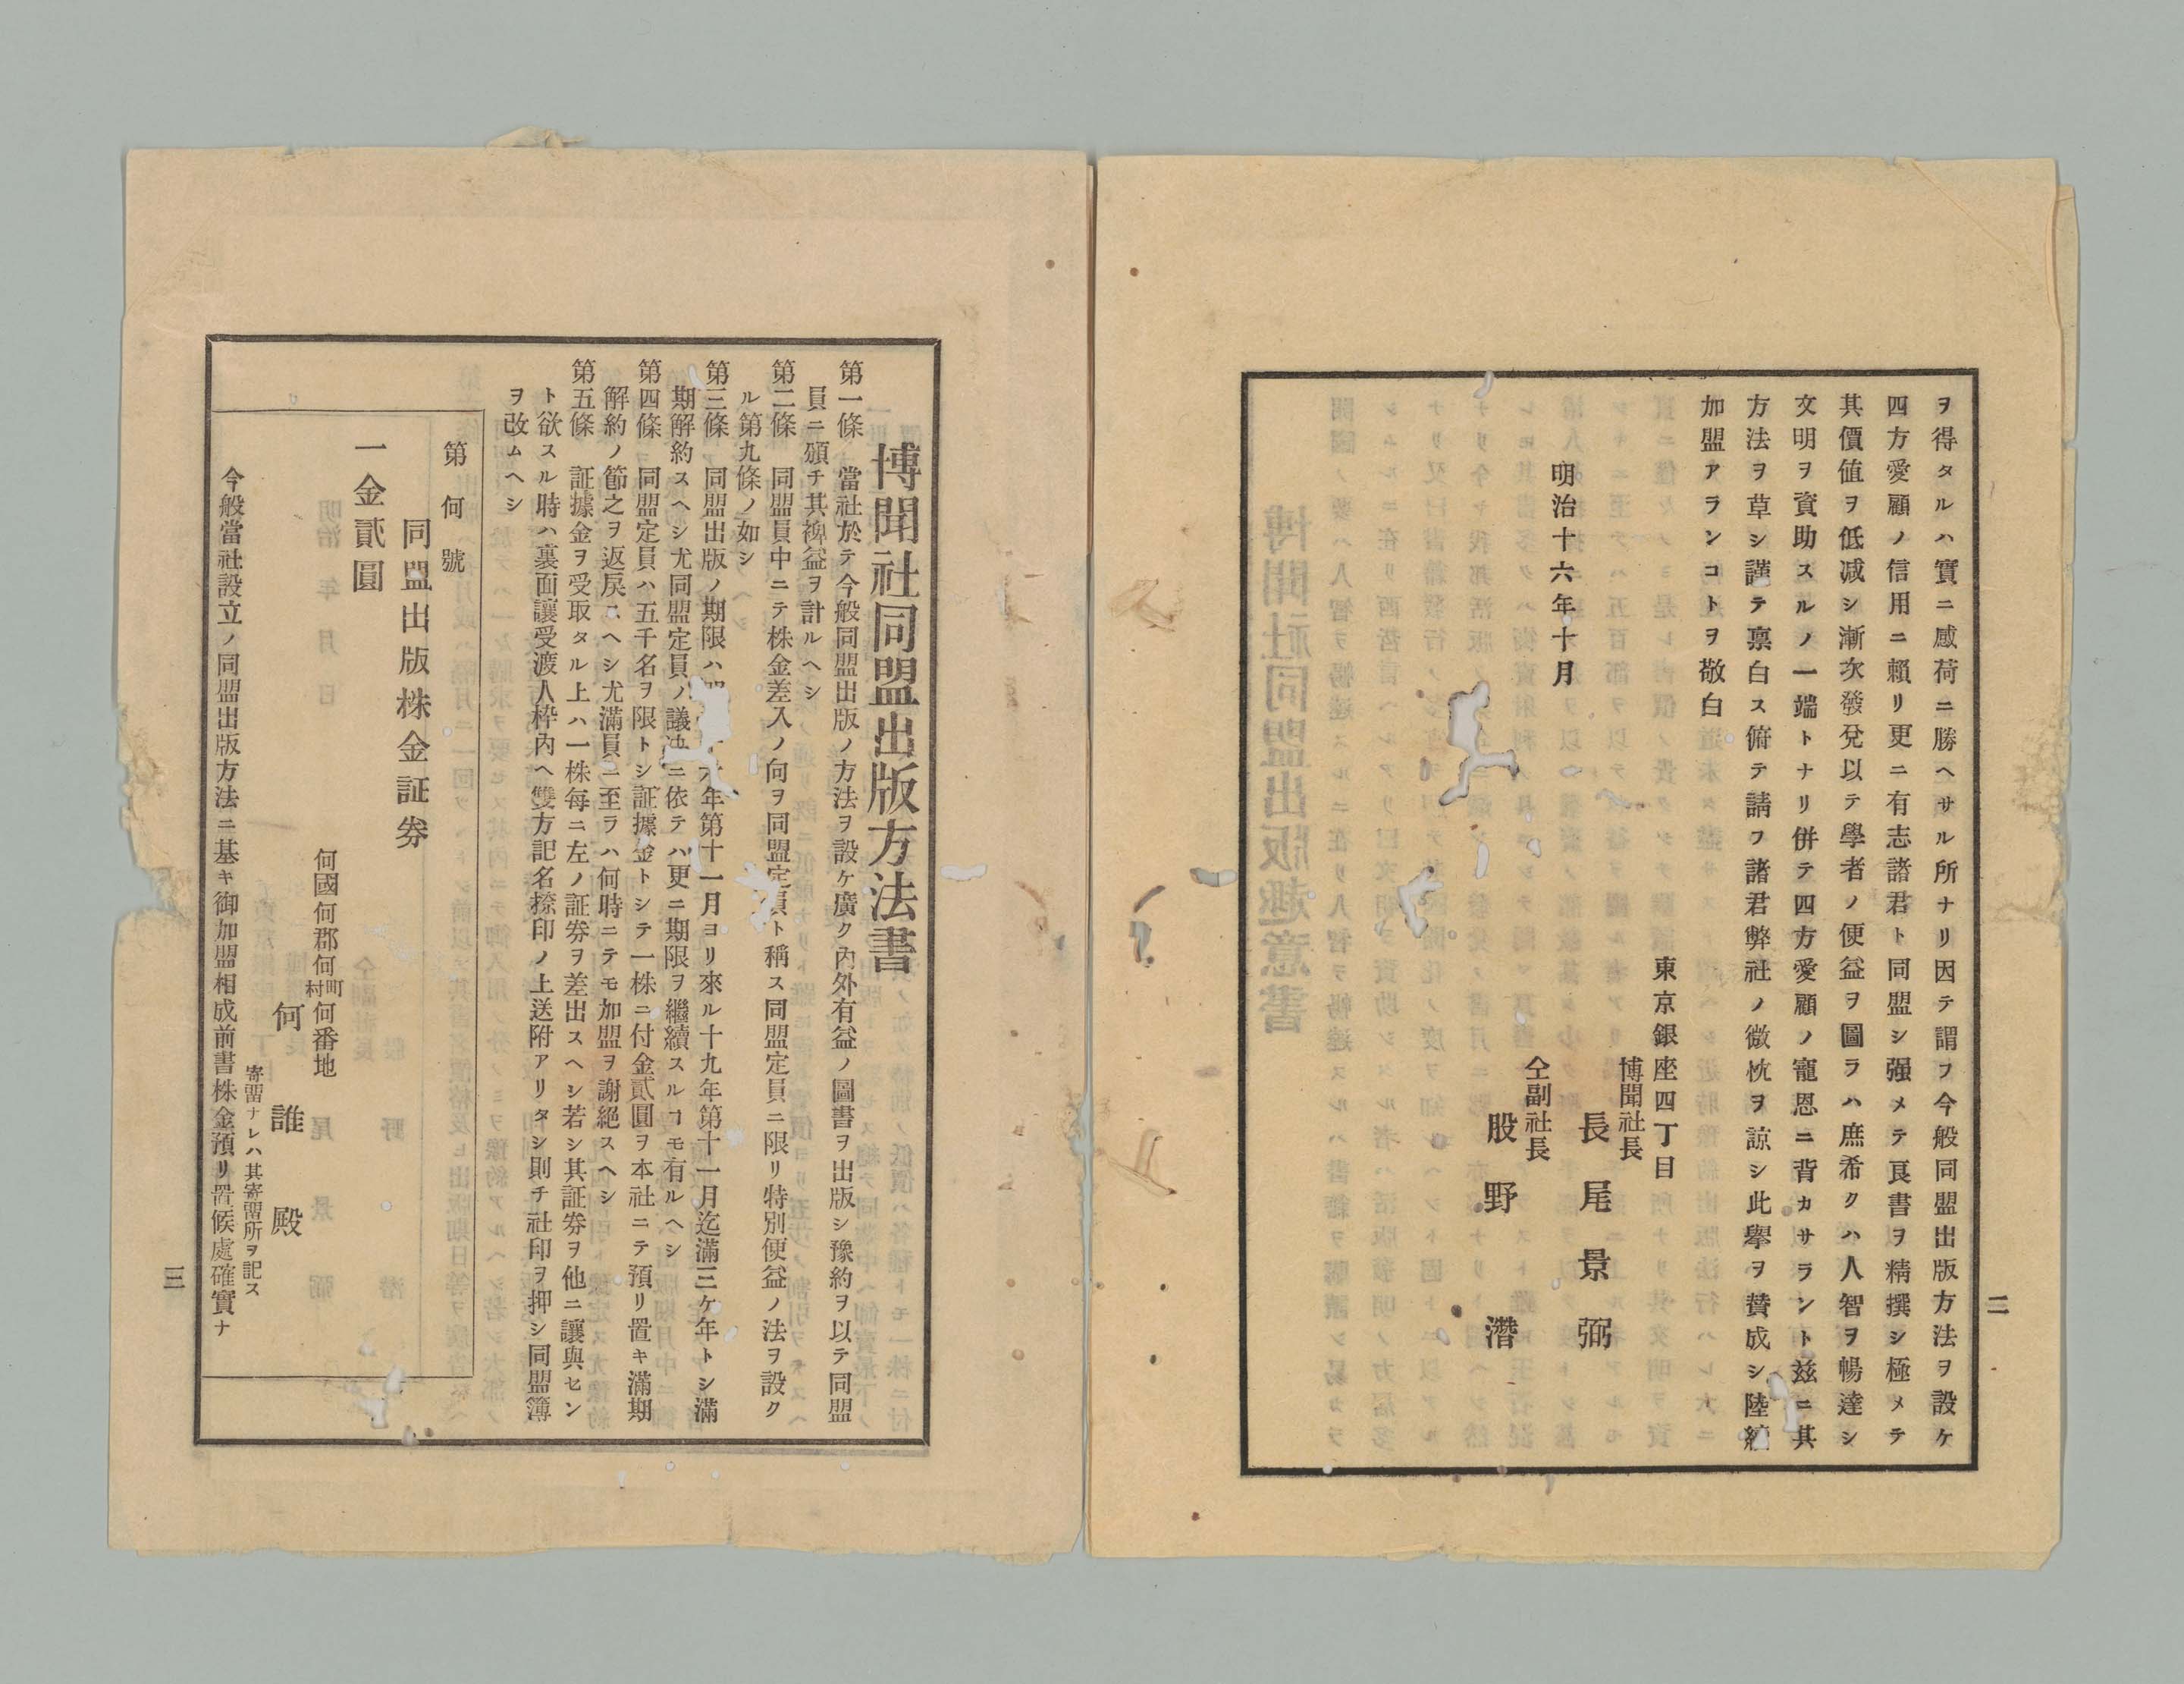 ヲ得タルハ實ニ感荷ニ勝ヘサル所ナリ因テ謂フ今般同盟出版方法ヲ設ケ
四方愛顧ノ信用ニ賴リ更ニ有志諸君ト同盟シ强メテ良書ヲ精撰シ極メテ
其價値ヲ低減シ漸次發兌以テ學者ノ便益ヲ圖ラハ庶希クハ人智ヲ暢達シ
文明ヲ資助スルノ一端トナリ併テ四方愛顧ノ寵恩ニ背カサラント茲ニ其
方法ヲ草シ謹テ稟白ス俯テ請フ諸君弊社ノ微忱ヲ諒シ此擧ヲ賛成シ陸續
加盟アランコトヲ敬白
東京銀座四丁目
博聞社長
長尾景弼
明治十六年十月
仝副社長
股野潛
二
博聞社同盟出版方法書
第一條 當社於テ今般同盟出版ノ方法ヲ設ケ廣ク內外有益ノ圖書ヲ出版シ豫約ヲ以テ同盟
員ニ頒チ其裨益ヲ計ルヘシ
第二條 同盟員中ニテ株金差入ノ向ヲ同盟定員ト稱ス同盟定員ニ限リ特別便益ノ法ヲ設ク
ル第九條ノ如シ
第三條 同盟出版ノ期限ハ 六年第十一月ヨリ來ル十九年第十一月迄滿三ケ年トシ滿
期解約スヘシ尤同盟定員ノ議决ニ依テハ更ニ期限ヲ繼續スルヿモ有ルヘシ
第四條 同盟定員ハ五千名ヲ限トシ証據金トシテ一株ニ付金貳圓ヲ本社ニテ預リ置キ滿期
解約ノ節之ヲ返戾スヘシ尤滿員ニ至ラハ何時ニテモ加盟ヲ謝絕スヘシ
第五條 証據金ヲ受取タル上ハ一株每ニ左ノ証券ヲ差出スヘシ若シ其証券ヲ他ニ讓與セン
ト欲スル時ハ裏面讓受渡人枠內ヘ雙方記名捺印ノ上送附アリタシ則チ社印ヲ押シ同盟簿
ヲ改ムヘシ
第何號
同盟出版株金証券
一金貳圓
何國何郡何町村何番地
何誰殿
寄留ナレハ其寄留所ヲ記ス
今般當社設立ノ同盟出版方法ニ基キ御加盟相成前書株金預リ置候處確實ナ
三